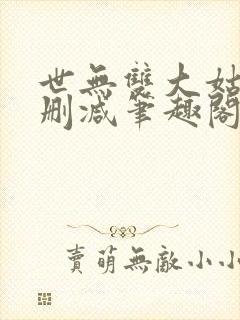 世無雙大姑
刪减筆趣閣
賣萌無敵小小